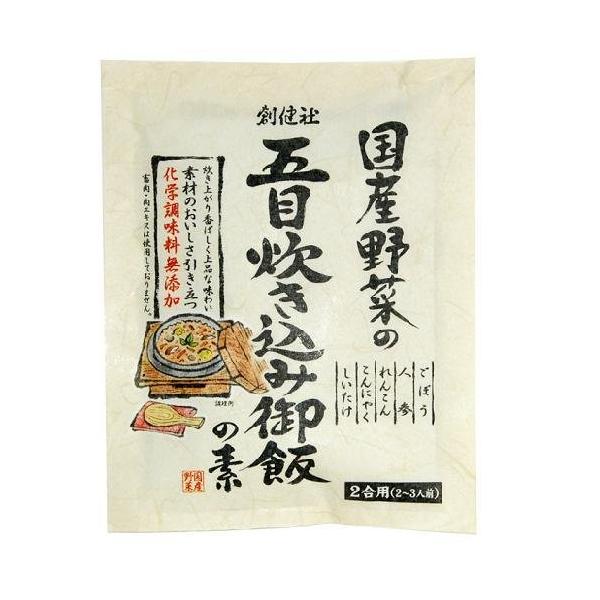 国産野菜の
ごぼう
人参
れんこん
こんにゃく
しいたけ
創健社
五目炊き込み御飯
の素
炊き上がり香ばしく上品な味わい
素材のおいしさ引き立つ
化学調味料無添加
畜肉・肉エキスは使用しておりません。
調理例
国産
野菜
2合用(2~3人前)